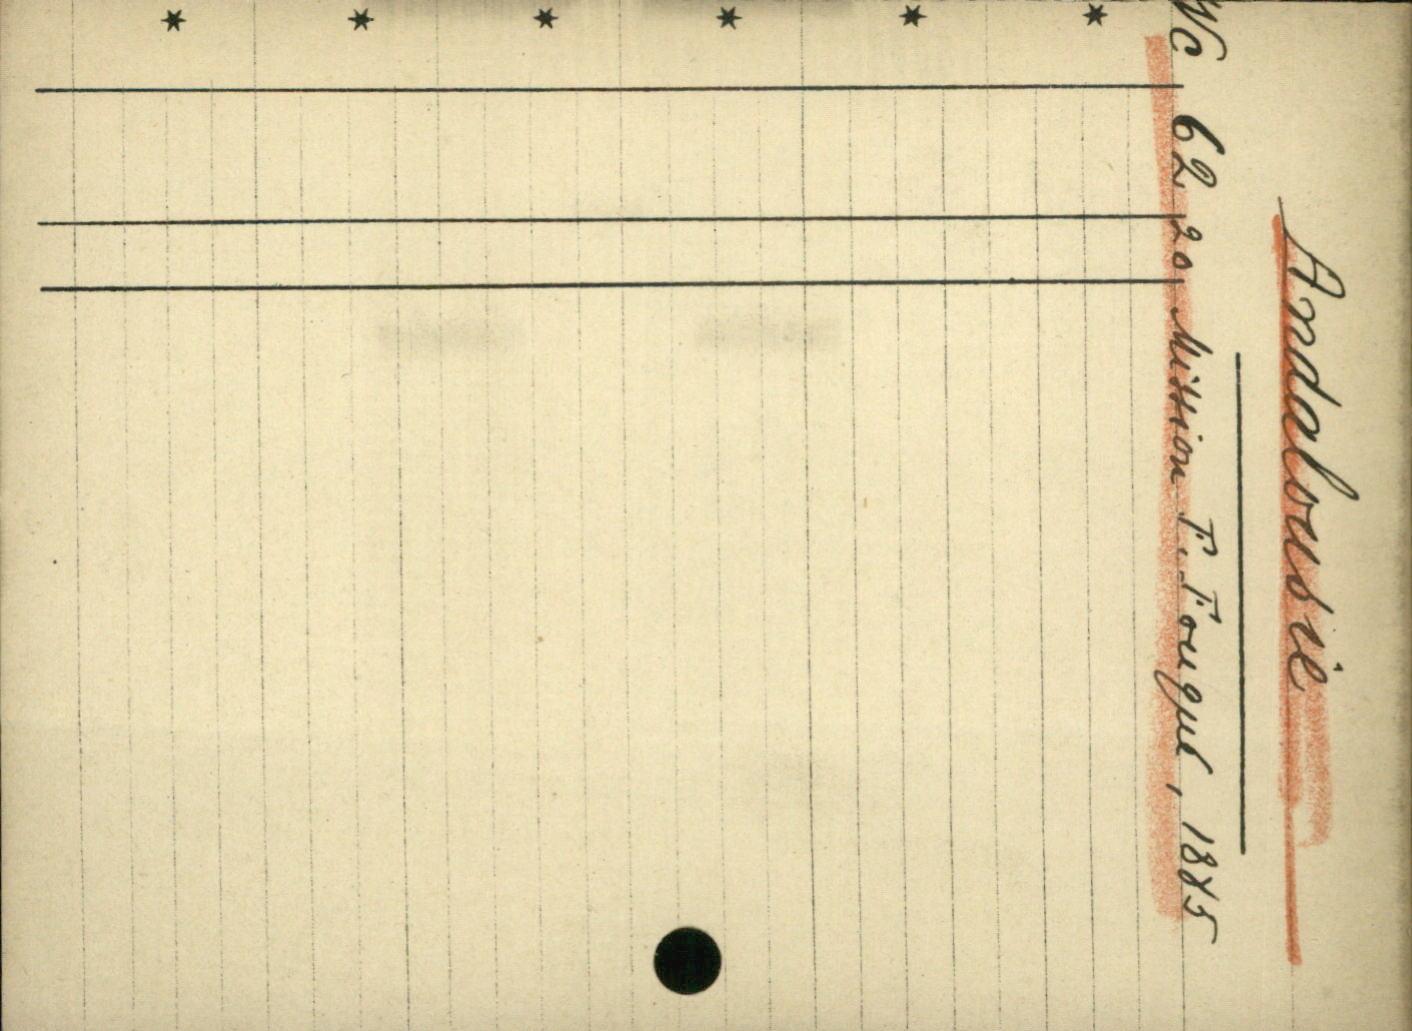 Andalousie
Wc 62 20 Mission F. Fouqué, 1885